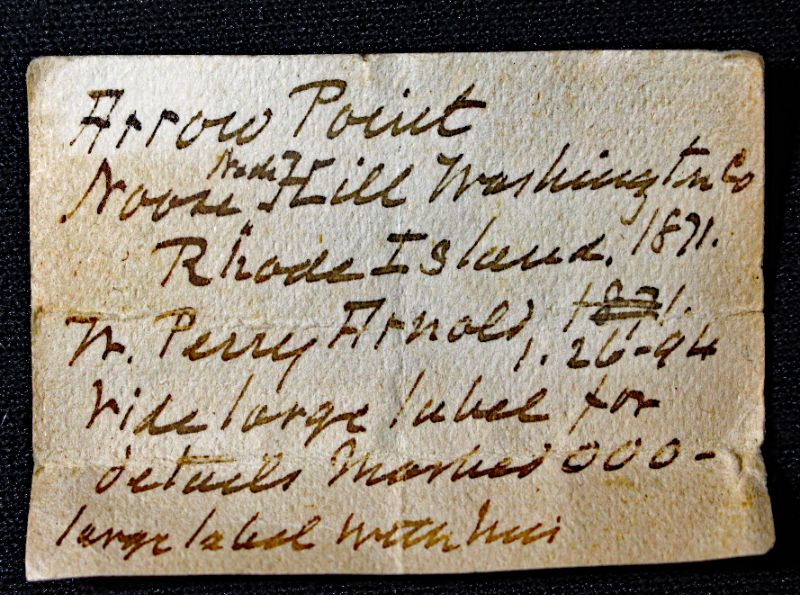 Arrow Point
Noose Hill Washingtn Co
Rhode Island. 1871.
W. Perry Arnold, 1871.
1. 26-94
Vide large label for
details Marked 000-
large label with this